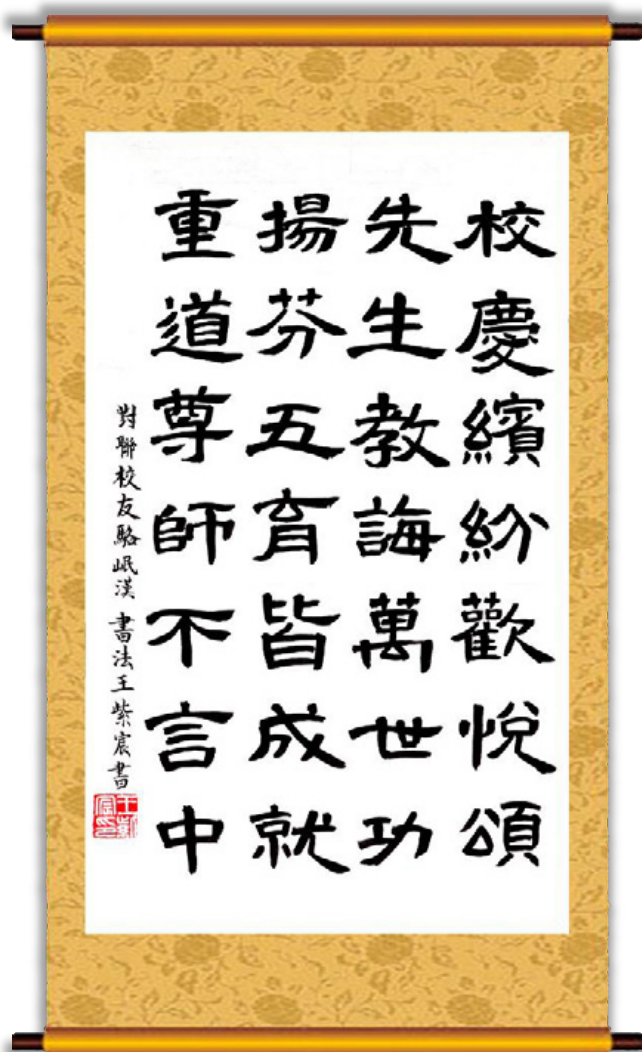 校慶繽紛歡悅頌
先生教誨萬世功
揚芬五育皆成就
重道尊師不言中
對聯校友駱岷漢 書法王紫宸書